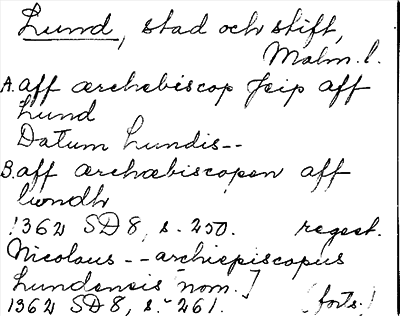 Lund, stad och stift,
Malm. l.
A. aff ærchebiscop Jeip aff
Lund
Datum Lundis--
B. aff archæbiscopen aff
lwndh
1362 SD 8, s. 250. regest.
Nicolaus -- archiepiscopus
Lundensis [nom.]
1362 SD 8, s. 261. (forts.)